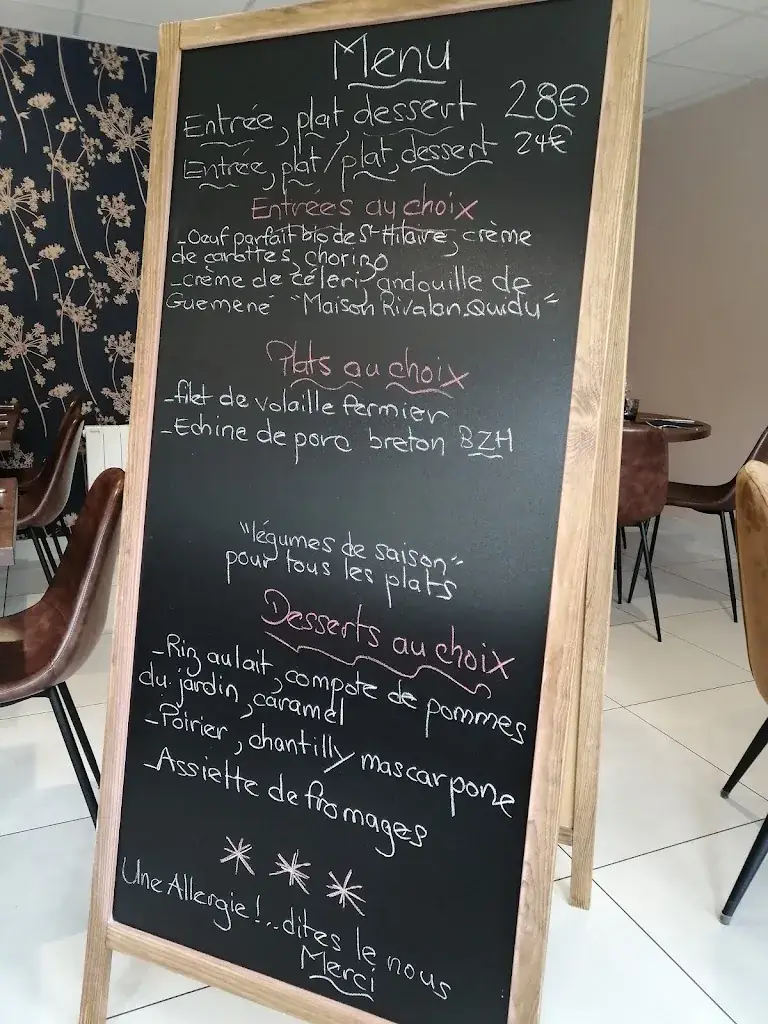 Menu
Entrée, plat, dessert 28€
Entrée, plat/plat, dessert 24€
Entrées au choix
-Oeuf parfait bio de St Hilaire, crème
de carottes, chorizo
-crème de céleri, andouille de
Guemené "Maison Rivalan Quidu"
Plats au choix
-filet de volaille fermier
-Echine de porc breton BZH
"légumes de saison"
pour tous les plats
Desserts au choix
-Riz au lait, compote de pommes
du jardin, caramel
-Poirier, chantilly mascarpone
-Assiette de fromages
Une Allergie!...dites le nous
Merci